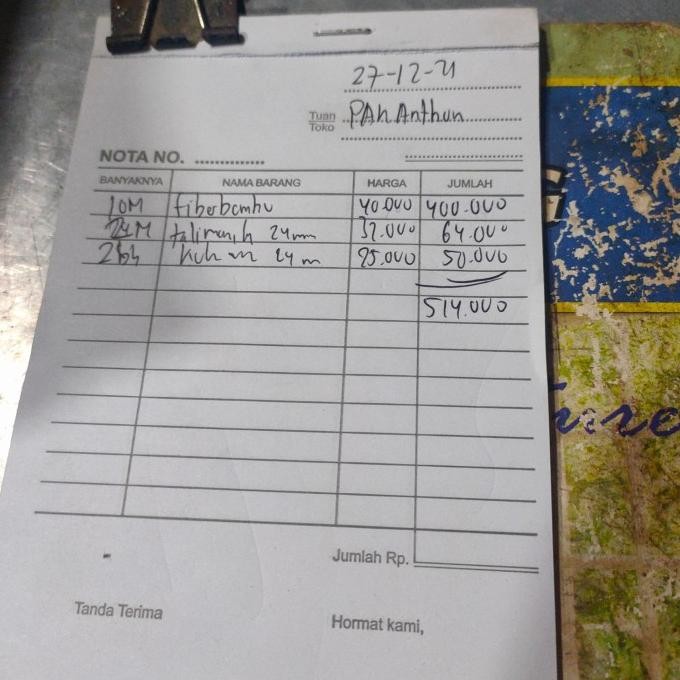 27-12-21
Tuan PAh Anthon
Toko
NOTA NO. ..............
BANYAKNYA NAMA BARANG HARGA JUMLAH
10M fiberbambu 40.000 400.000
32.000 64.000
25.000 50.000
514.000
Jumlah Rp.
Tanda Terima
Hormat kami,